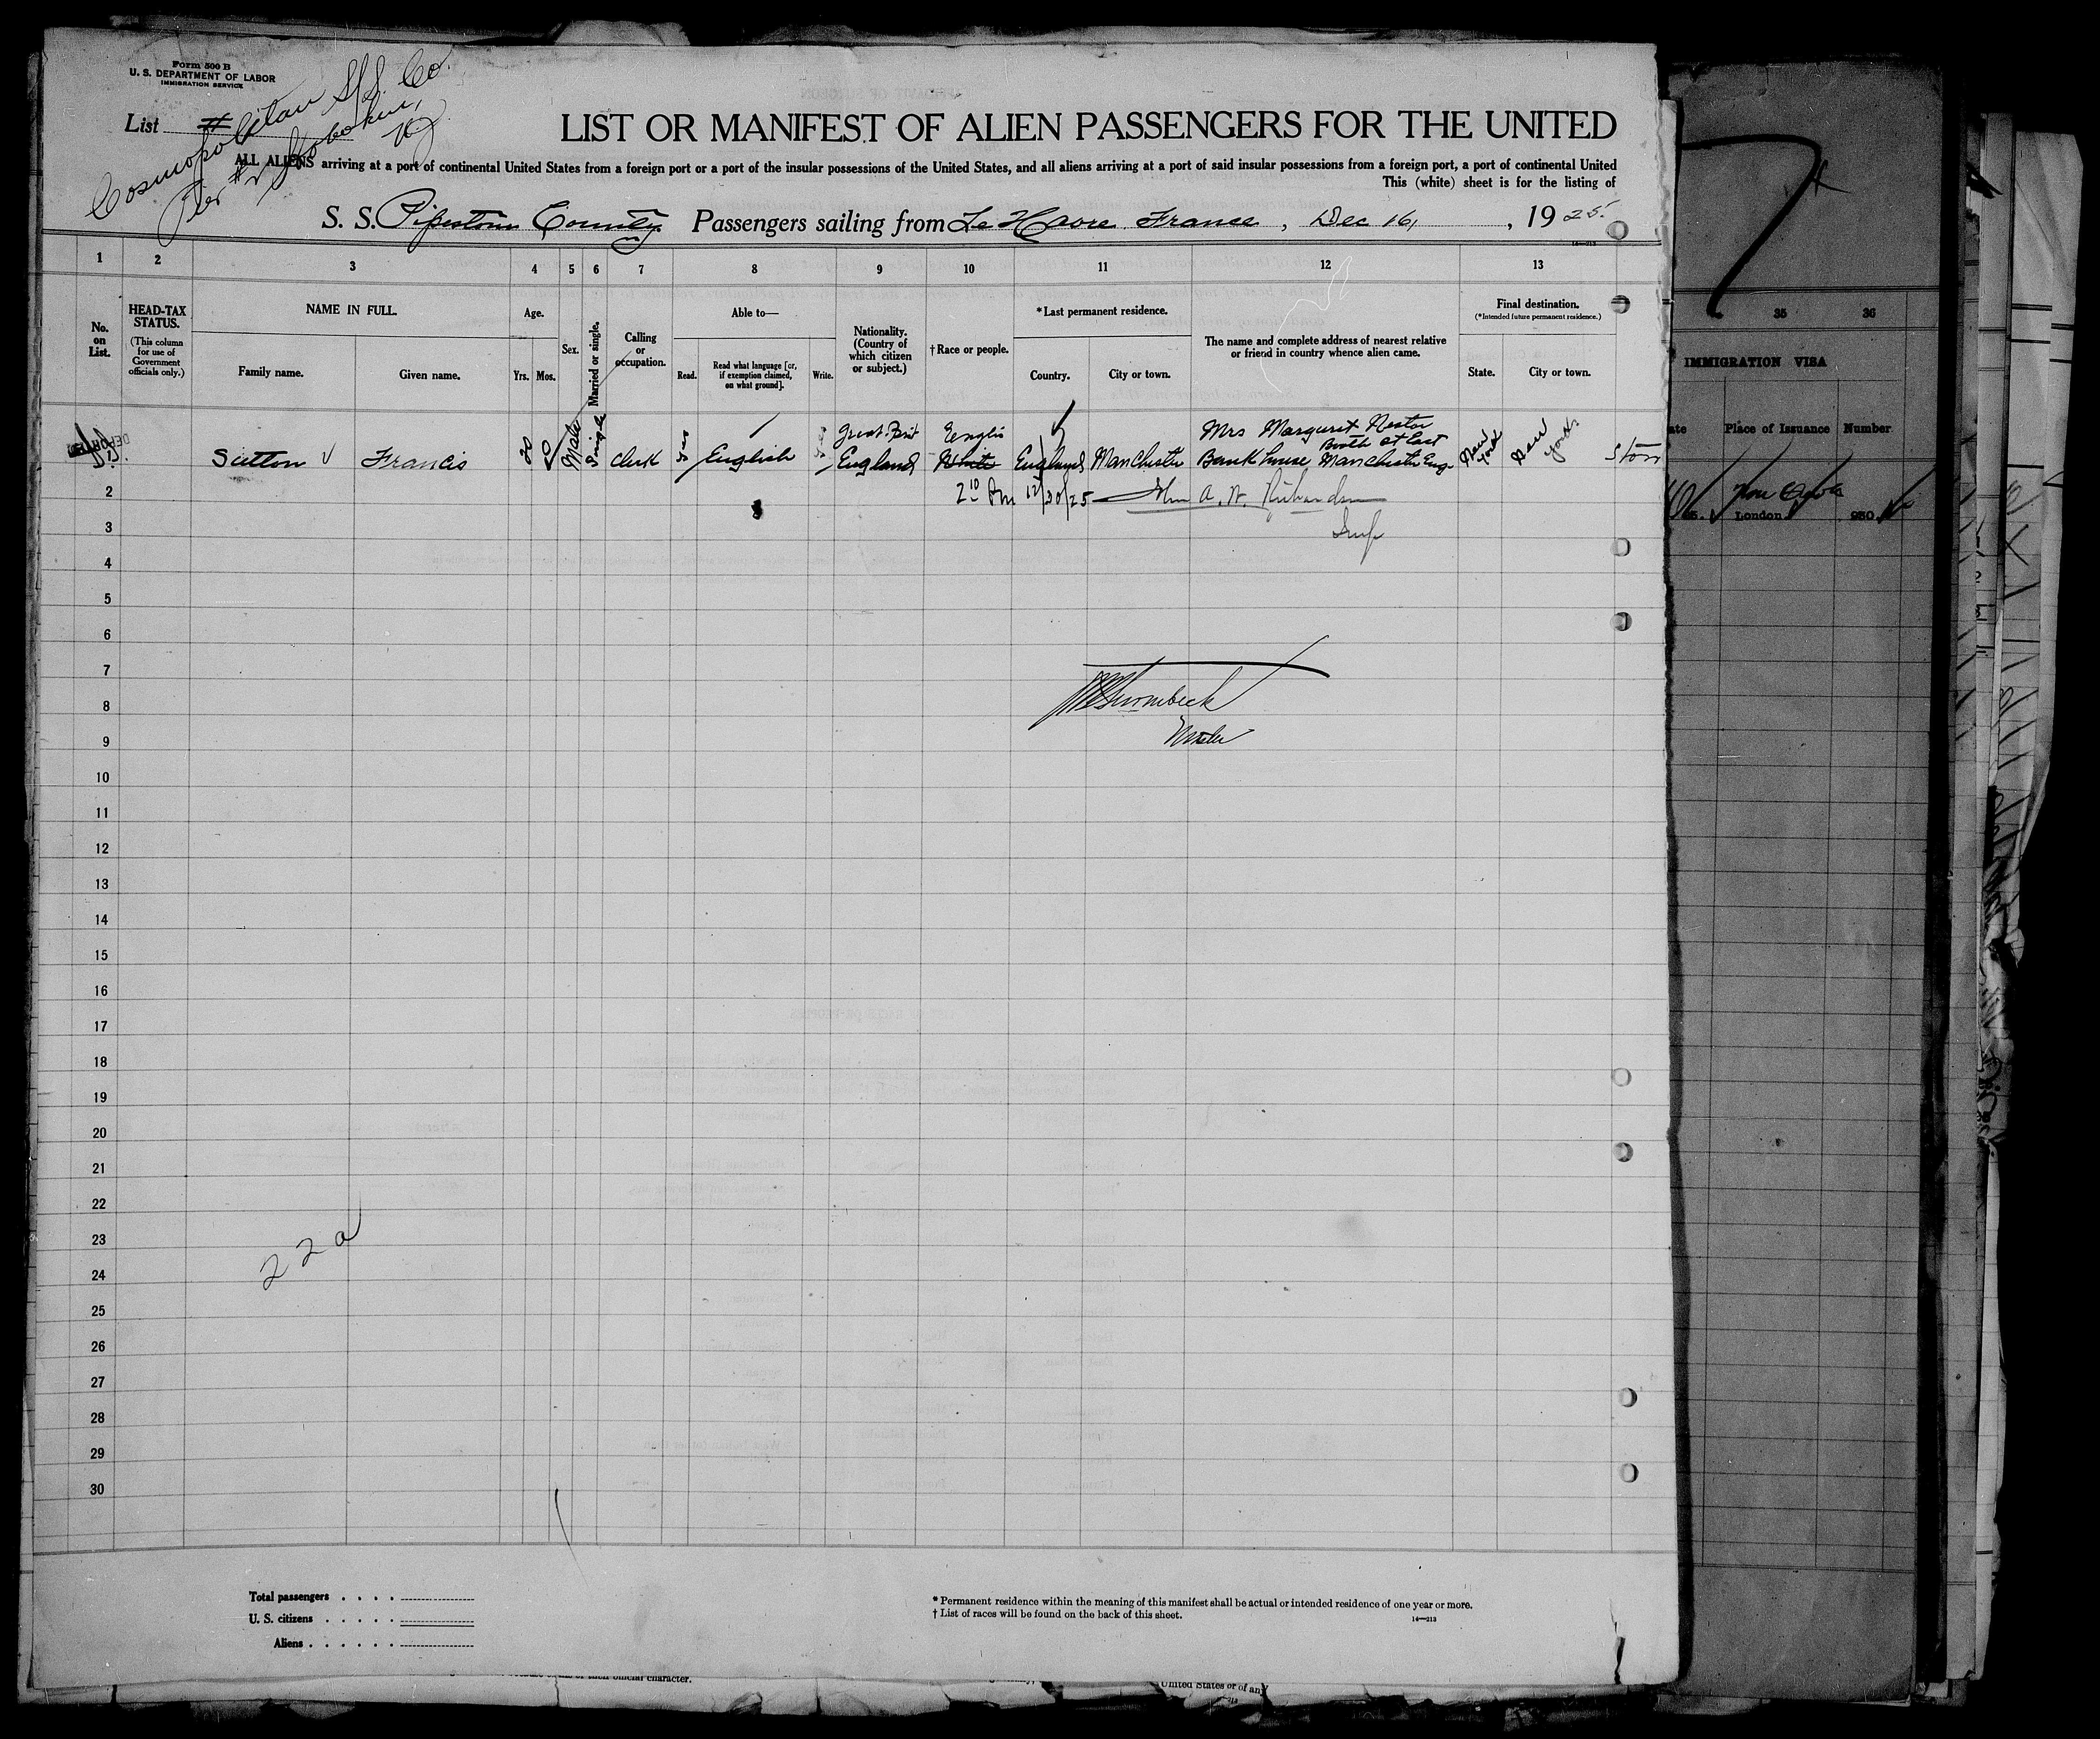 Form 500 B
U. S. DEPARTMENT OF LABOR
IMMIGRATION SERVICE
Cosmopolitan S/S. Co.
Pier # 2 Hoboken,
List
LIST OR MANIFEST OF ALIEN PASSENGERS FOR THE UNITED
ALL ALIENS arriving at a port of continental United States from a foreign port or a port of the insular possessions of the United States, and all aliens arriving at a port of said insular possessions from a foreign port, a port of continental United
This (white) sheet is for the listing of
S. S. Pipestone County Passengers sailing from Le Havre France, Dec 16, , 19 25.
14—213
1 2 3 4 5 6 7 8 9 10 11 12 13
No. on List.
HEAD-TAX STATUS.
(This column for use of Government officials only.)
NAME IN FULL.
Family name.
Given name.
Age.
Yrs. Mos.
Sex.
Married or single.
Calling or occupation.
Able to—
Read.
Read what language [or, if exemption claimed, on what ground].
Write.
Nationality. (Country of which citizen or subject.)
† Race or people.
*Last permanent residence.
Country.
City or town.
The name and complete address of nearest relative or friend in country whence alien came.
Final destination.
(*Intended future permanent residence.)
State.
City or town.
35 36
IMMIGRATION VISA
Place of Issuance
Number
DEPORTED
Great Brit
Englis
Mrs Margaret Nestor
Booth St East
Sutton Francis 20 Male Single Clerk Yes English Yes England White England Manchester Bank house Manchester Eng New York New York
2 10 Pm 12/30/25 John A. W. Richardson
Insp
London
950
2
3
4
5
6
7
8
Master
9
10
11
12
13
14
15
16
17
18
19
20
21
22
23
22 a
24
25
26
27
28
29
30
Total passengers . . . .
U. S. citizens . . . . .
Aliens . . . . . .
* Permanent residence within the meaning of this manifest shall be actual or intended residence of one year or more.
† List of races will be found on the back of this sheet.
14—213
official character.
United States or of any